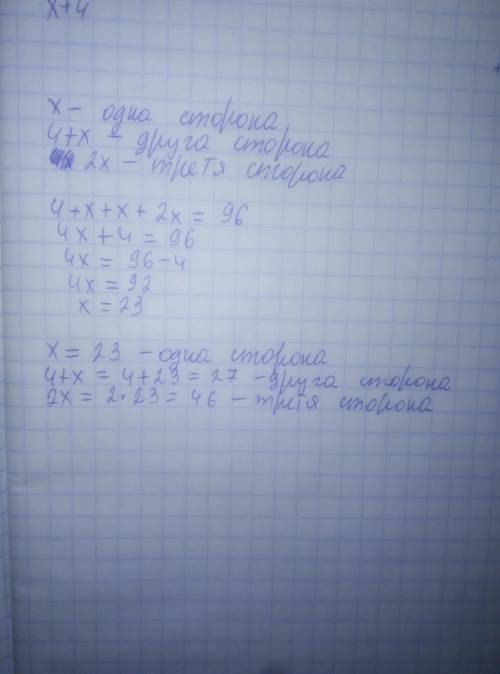 x+4
x – одна сторона
4+x – друга сторона
2x – третя сторона
4+x+x+2x = 96
4x+4 = 96
4x = 96-4
4x = 92
x = 23
x = 23 – одна сторона
4+x = 4+23 = 27 - друга сторона
2x = 2·23 = 46 – третя сторона